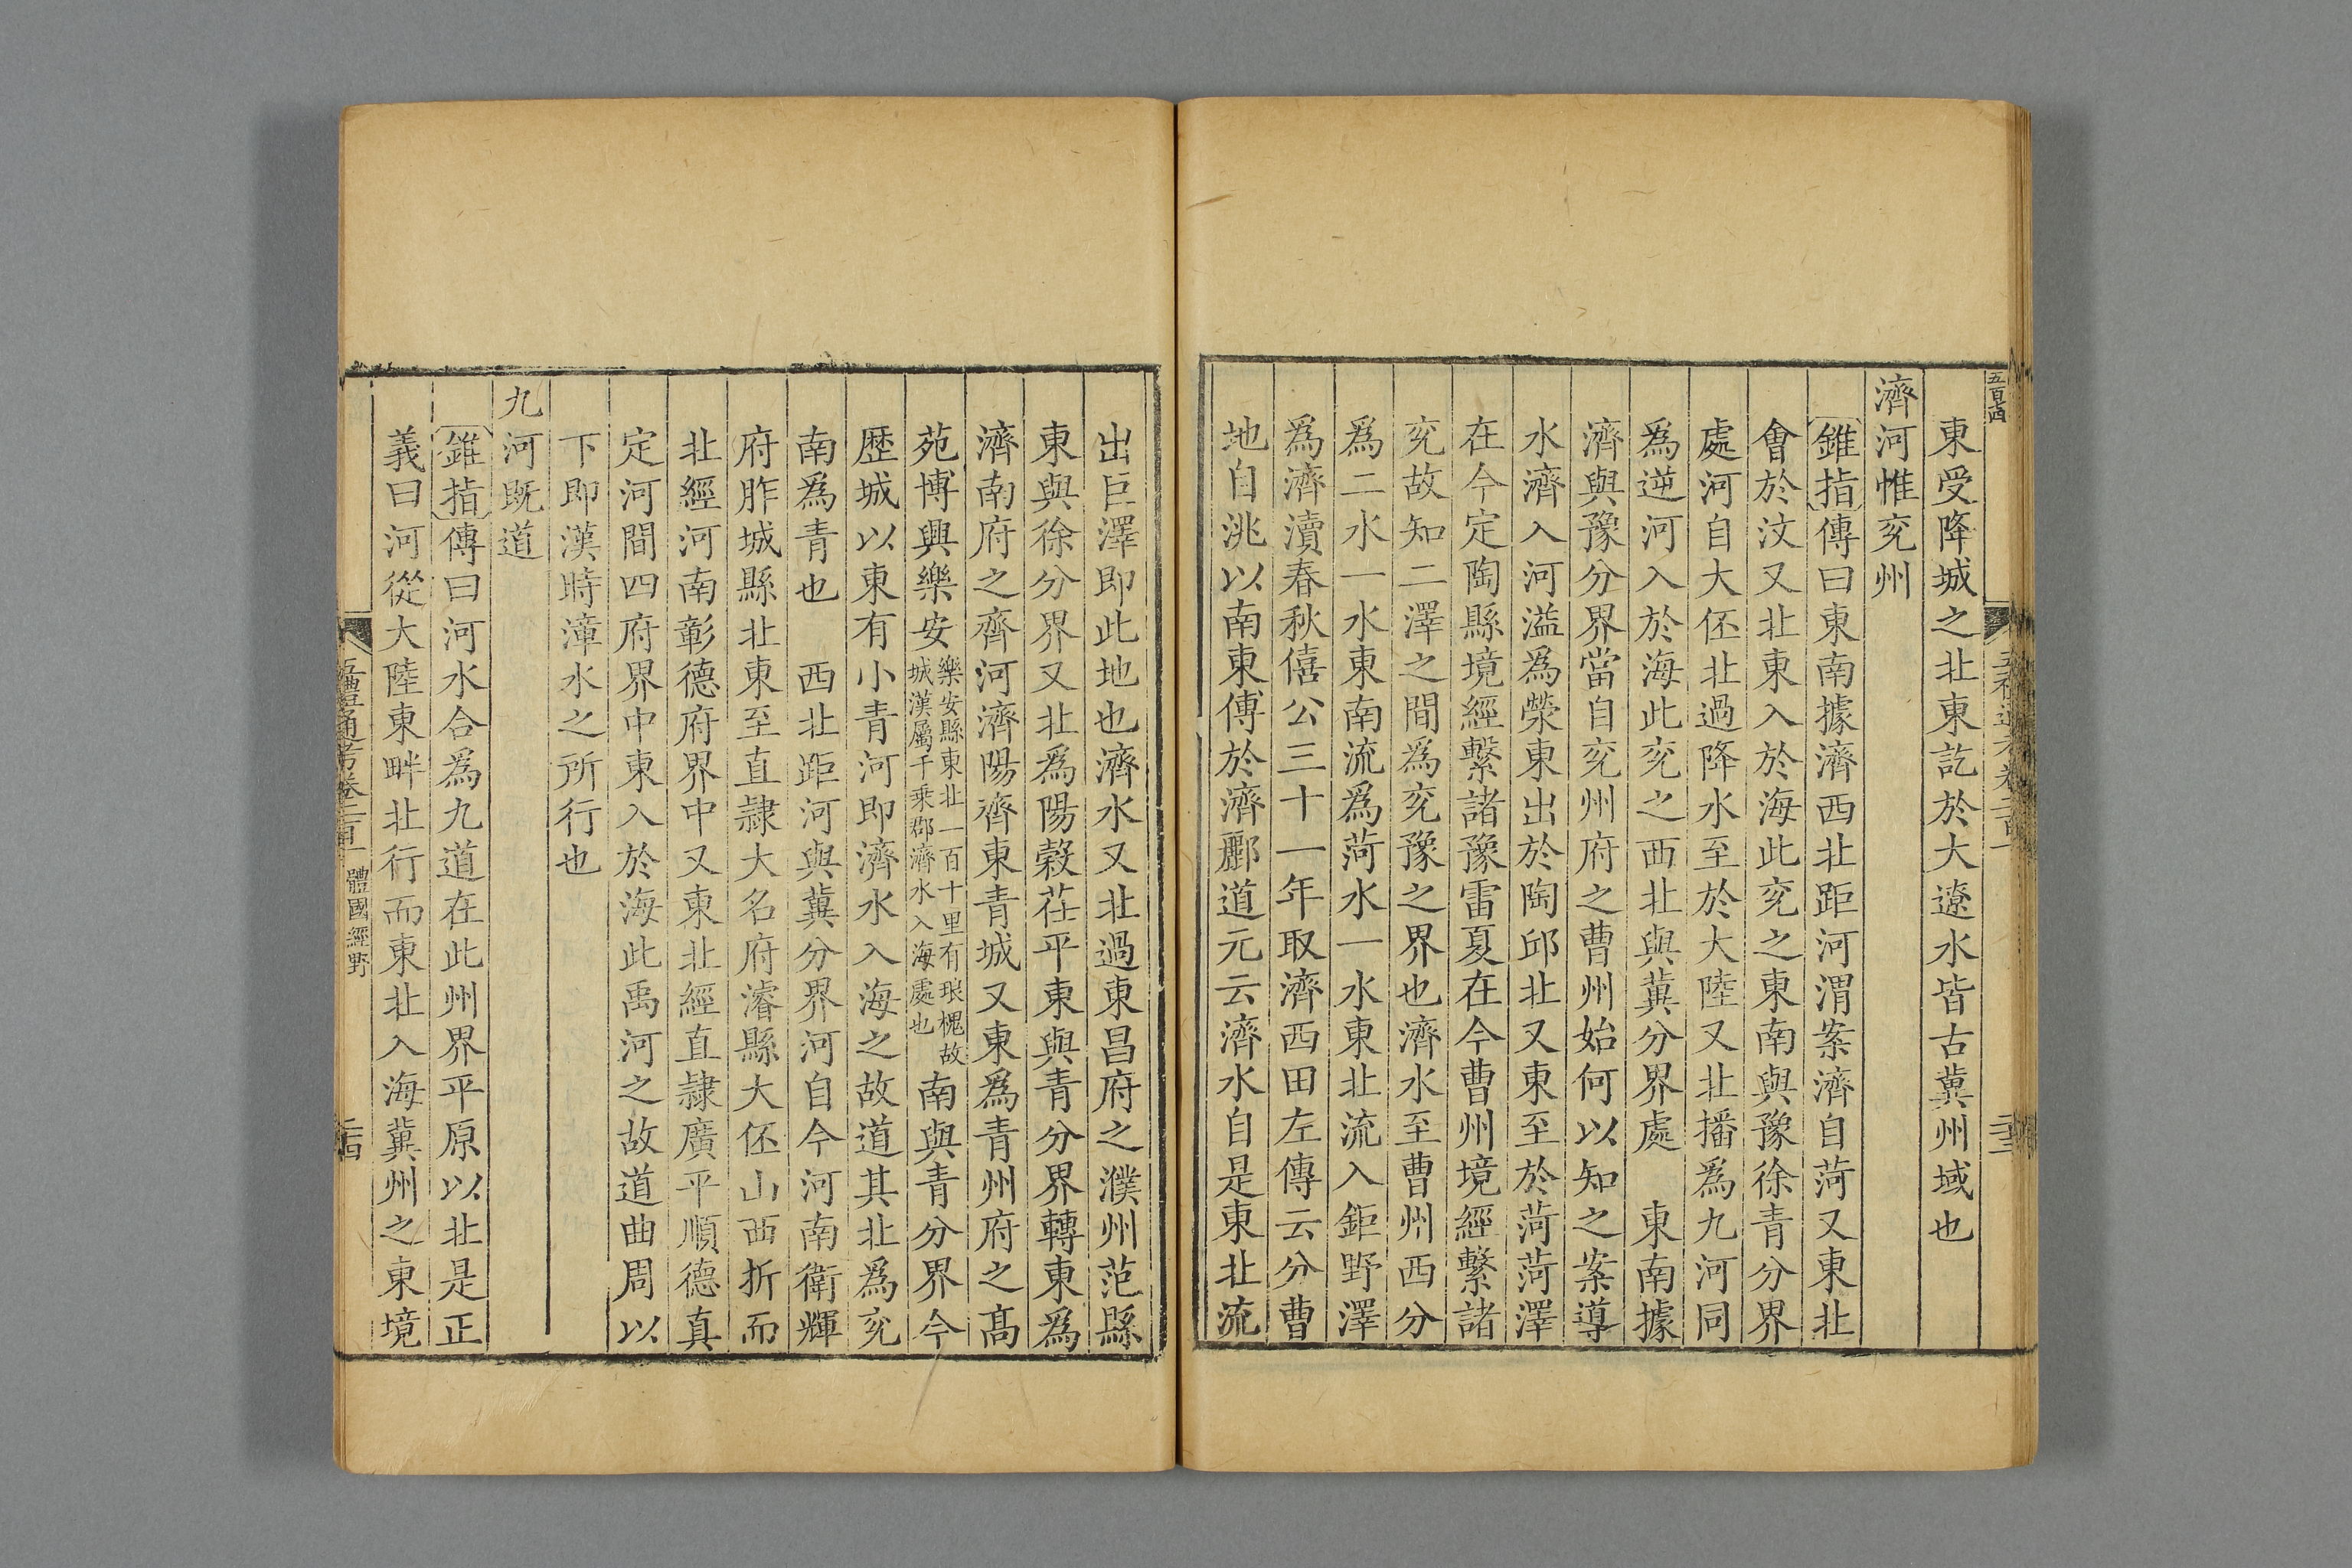 五百四
東受降城之北東訖於大遼水皆古冀州域也
濟河惟兖州
錐指傳曰東南據濟西北距河渭案濟自菏又東北
會於汶又北東入於海此兖之東南與豫徐青分界
處河自大伾北過降水至於大陸又北播為九河同
為逆河入於海此兖之西北與冀分界處　東南據
濟與豫分界當自兖州府之曹州始何以知之案導
水濟入河溢為滎東出於陶邱北又東至於菏菏澤
在今定陶縣境經繫諸豫雷夏在今曹州境經繫諸
兖故知二澤之間為兖豫之界也濟水至曹州西分
為二水一水東南流為菏水一水東北流入鉅野澤
為濟瀆春秋僖公三十一年取濟西田左傳云分曹
地自洮以南東傅於濟酈道元云濟水自是東北流
出巨澤即此地也濟水又北過東昌府之濮州范縣
東與徐分界又北為陽穀茌平東與青分界轉東為
濟南府之齊河濟陽齊東青城又東為青州府之高
苑博興樂安樂安縣東北一百十里有琅槐故城漢屬千乘郡濟水入海處也南與青分界今
歷城以東有小青河即濟水入海之故道其北為兖
南為青也　西北距河與冀分界河自今河南衛輝
府胙城縣北東至直隸大名府濬縣大伾山西折而
北經河南彰德府界中又東北經直隸廣平順德真
定河間四府界中東入於海此禹河之故道曲周以
下即漢時漳水之所行也
九河既道
錐指傳曰河水合為九道在此州界平原以北是正
義曰河從大陸東畔北行而東北入海冀州之東境
五禮通考卷二百一　體國經野　二十四